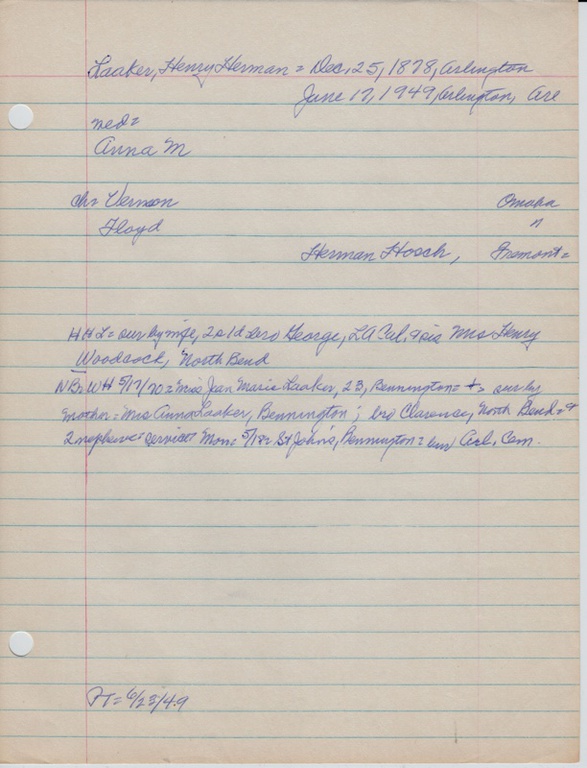 Laaker, Henry Herman = Dec, 25, 1878, Arlington
June 17, 1949, Arlington, Arl
med=
Anna M
ch= Vernon Omaha
Floyd "
Herman Hosch, Fremont=
HHL= sur by wife, 2s 1d bro George, LA Cal, + sis Mrs Henry
Woodcock, North Bend
NB= WH 5/17/70= Miss Jean Marie Laaker, 23, Bennington= + = sur by
mother= Mrs Anna Laaker, Bennington; bro Clarence, North Bend= +
2 nephews= services Mon= 5/18= St John's, Bennington= bur Arl. Cem.
AT= 6/23/49